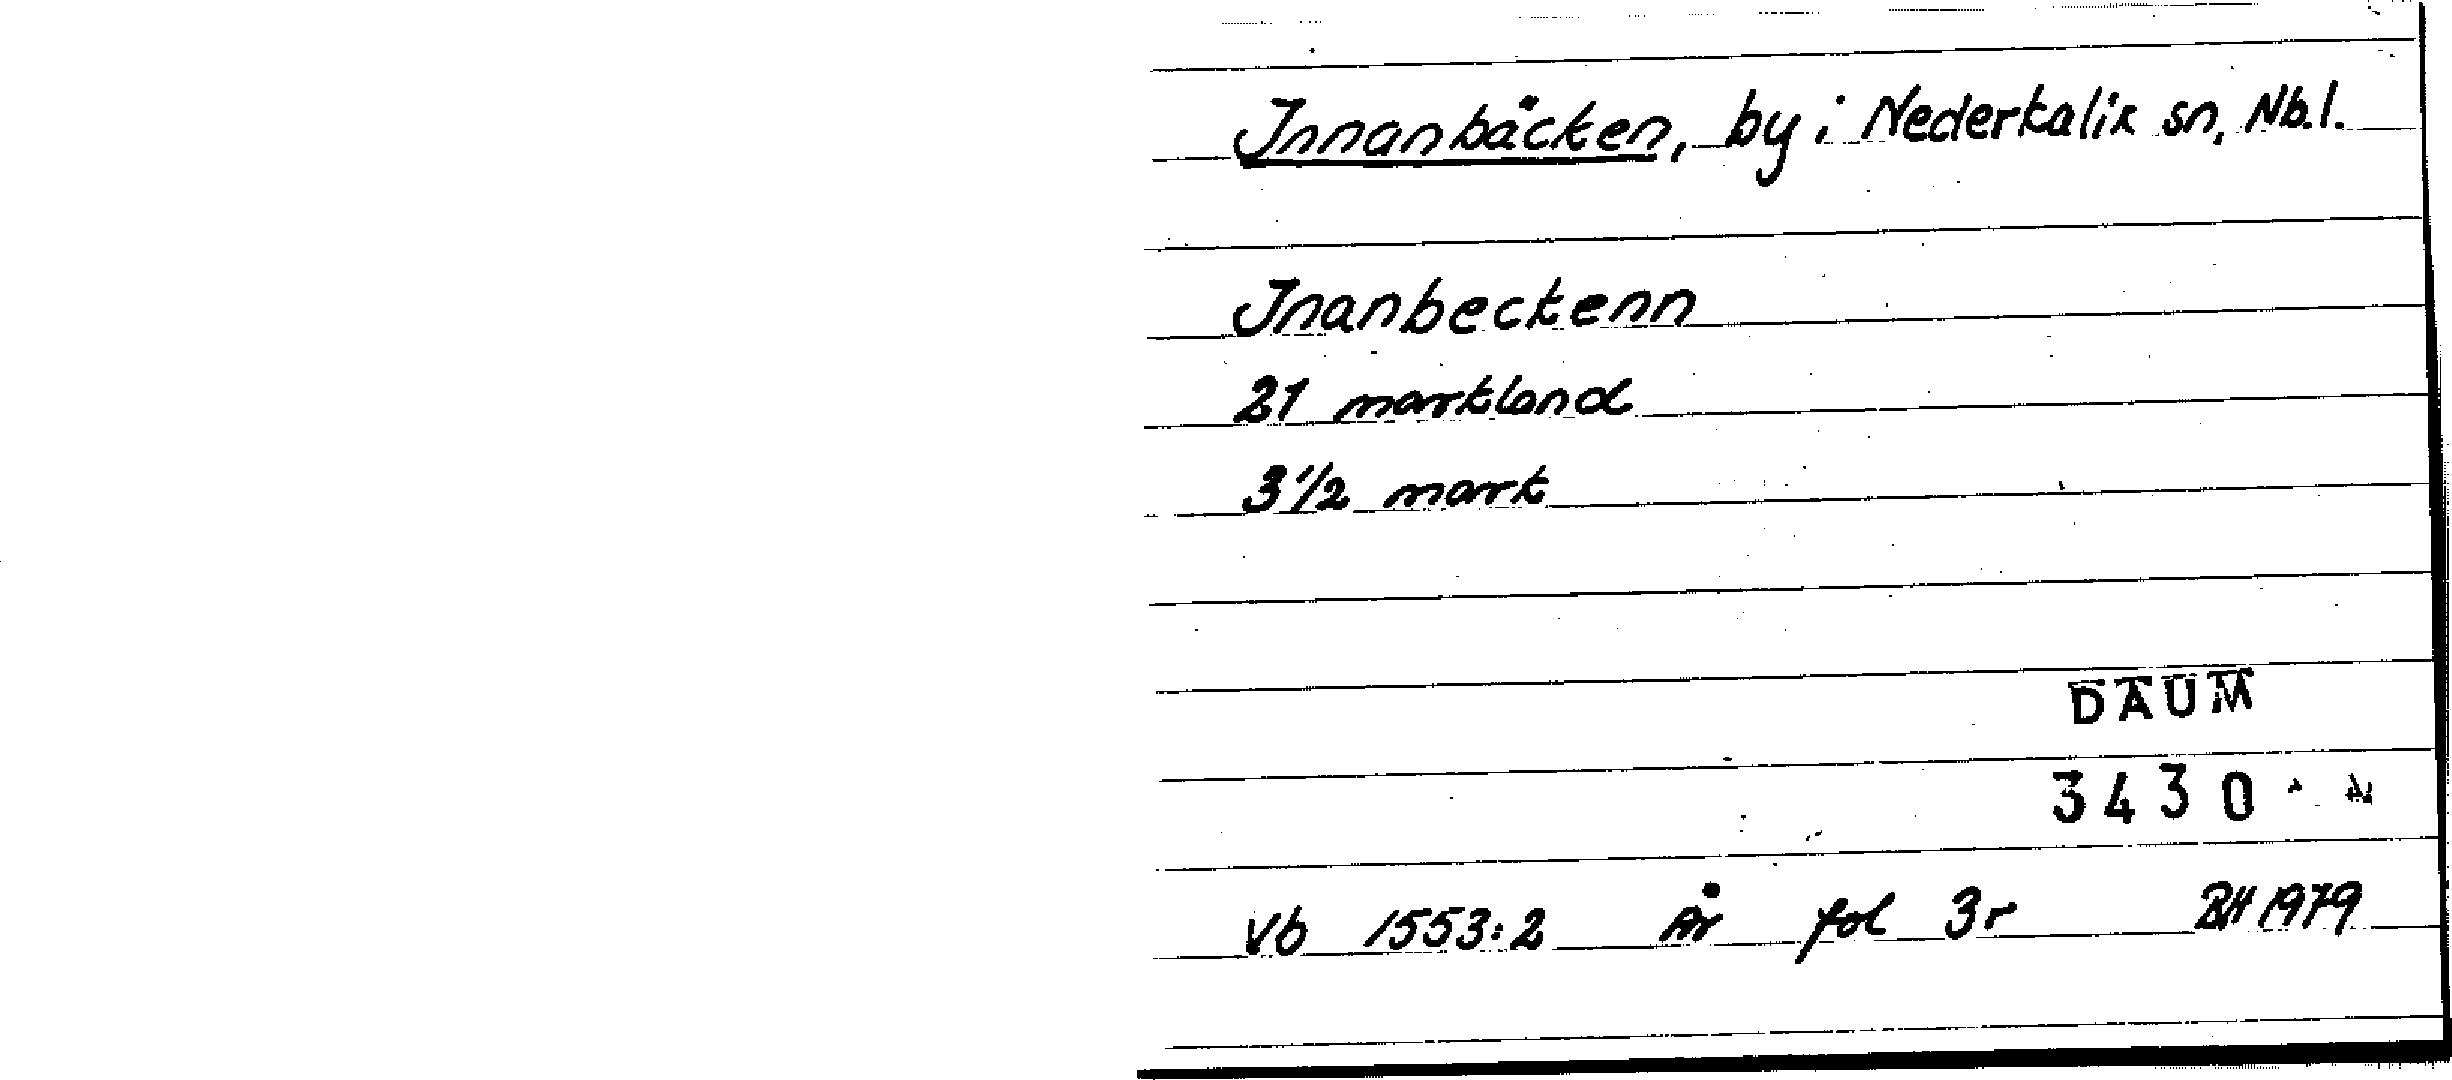 Innanbäcken, by i Nederkalix sn, Nb.l.
Inanbeckenn
21 markland
3 1/2 mark
DAUM
3430
Vb 1553:2 År fol 3r BH 1979